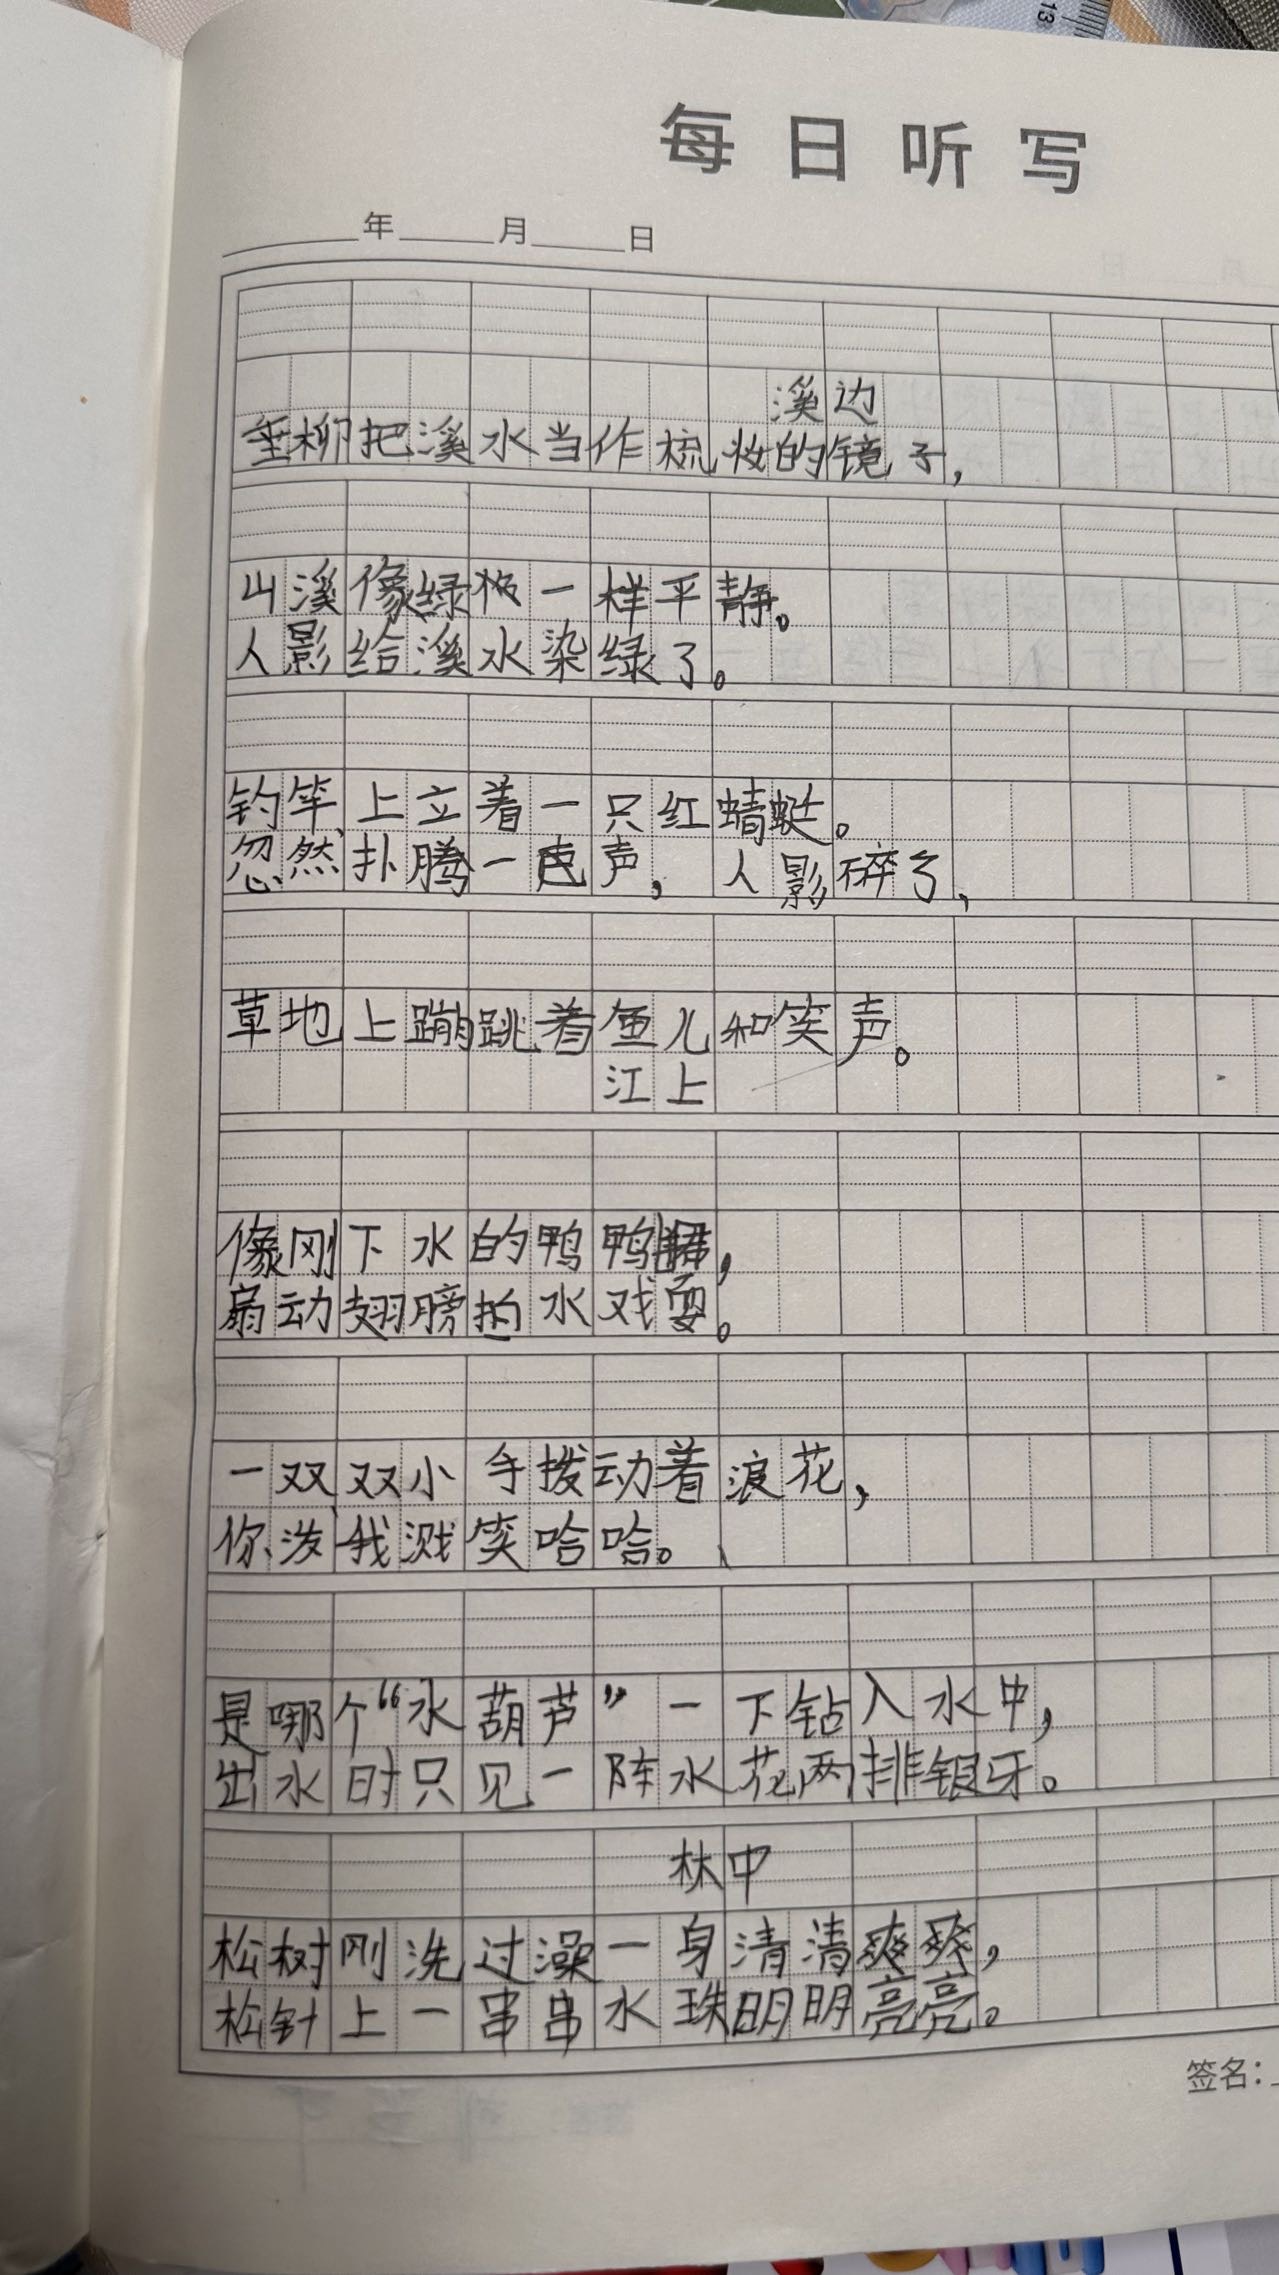 每日听写
年 月 日
溪边
垂柳把溪水当作梳妆的镜子，
山溪像绿 一样平静。
人影给溪水染绿了。
钓竿上立着一只红蜻蜓。
忽然扑腾一 声，人影碎了，
草地上蹦跳着鱼儿和笑声。
江上
像刚下水的鸭鸭 ，
扇动翅膀拍水戏耍。
一双双小手拨动着浪花，
你泼我溅笑哈哈。
是哪个“水葫芦”一下钻入水中，
出水时只见一阵水花两排银牙。
林中
松树刚洗过澡一身清清爽爽，
松针上一串串水珠明明亮亮。
签名：
13